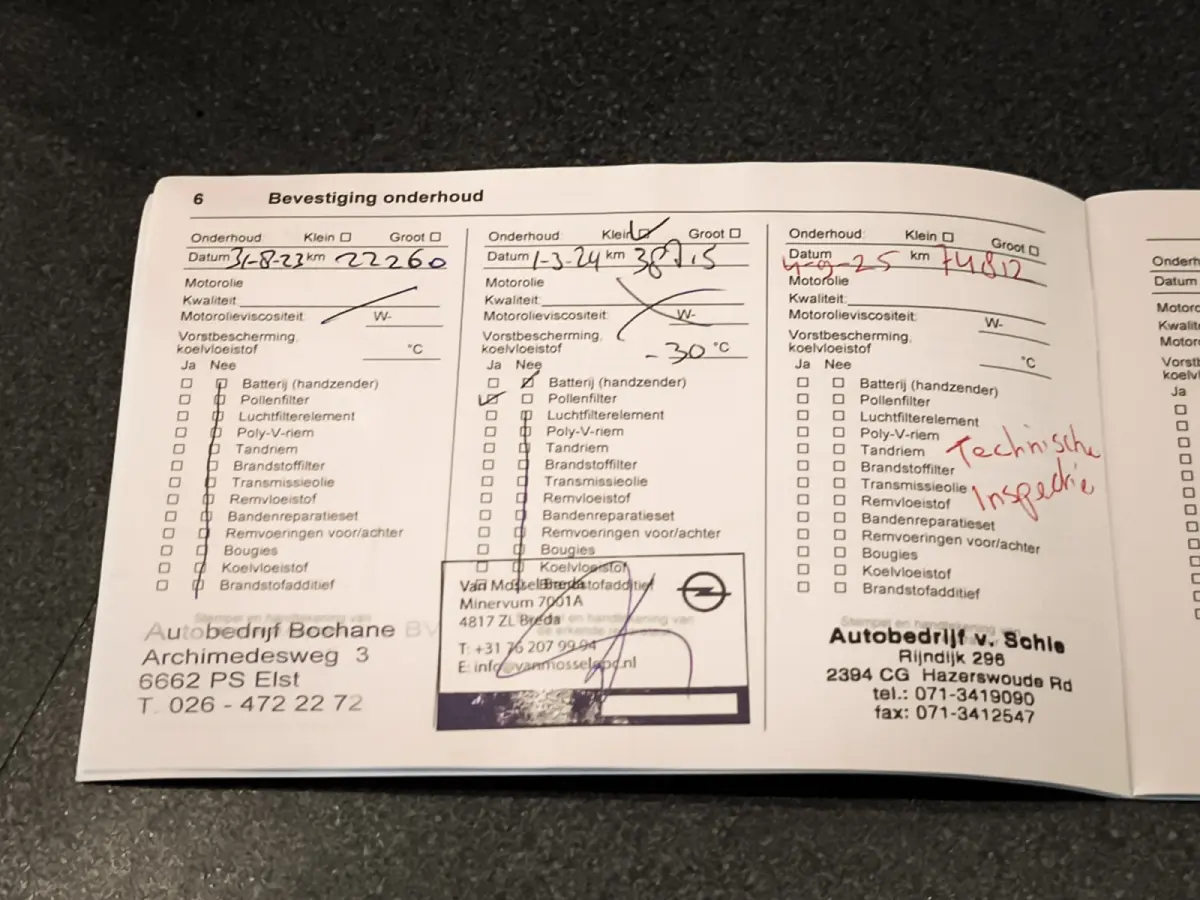 6 Bevestiging onderhoud
Onderhoud Klein Groot
Datum 31-8-23 km 22260
Motorolie
Kwaliteit:
Motorolieviscositeit: W-
Vorstbescherming,
koelvloeistof °C
Ja Nee
Batterij (handzender)
Pollenfilter
Luchtfilterelement
Poly-V-riem
Tandriem
Brandstoffilter
Transmissieolie
Remvloeistof
Bandenreparatieset
Remvoeringen voor/achter
Bougies
Koelvloeistof
Brandstofadditief
Stempel en handtekening van
Autobedrijf Bochane BV
Archimedesweg 3
6662 PS Elst
T. 026 - 472 22 72
Onderhoud: Klein Groot
Datum 1-3-24 km
Motorolie
Kwaliteit:
Motorolieviscositeit: W-
Vorstbescherming,
koelvloeistof -30 °C
Ja Nee
Batterij (handzender)
Pollenfilter
Luchtfilterelement
Poly-V-riem
Tandriem
Brandstoffilter
Transmissieolie
Remvloeistof
Bandenreparatieset
Remvoeringen voor/achter
Bougies
Koelvloeistof
Brandstofadditief
Van Mossel Breda
Minervum 7001A
4817 ZL Breda
en handtekening van
T: +31 76 207 99 94
E: info@vanmosselopc.nl
Onderhoud: Klein Groot
Datum 4-9-25 km 74812
Motorolie
Kwaliteit:
Motorolieviscositeit: W-
Vorstbescherming,
koelvloeistof °C
Ja Nee
Batterij (handzender)
Pollenfilter
Luchtfilterelement
Poly-V-riem
Tandriem
Brandstoffilter
Transmissieolie
Remvloeistof
Bandenreparatieset
Remvoeringen voor/achter
Bougies
Koelvloeistof
Brandstofadditief
Technische
Inspectie
Autobedrijf v. Schie
Rijndijk 296
2394 CG Hazerswoude Rd
tel.: 071-3419090
fax: 071-3412547
Onderh
Datum
Motoro
Kwalite
Motoro
Vorstb
koelvl
Ja